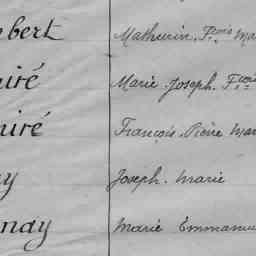 ebert Mathurin Fçois Ma
iré Marie Joseph Fçois
iré François Pierre Mar
y Joseph Marie
nay Marie Emmanue